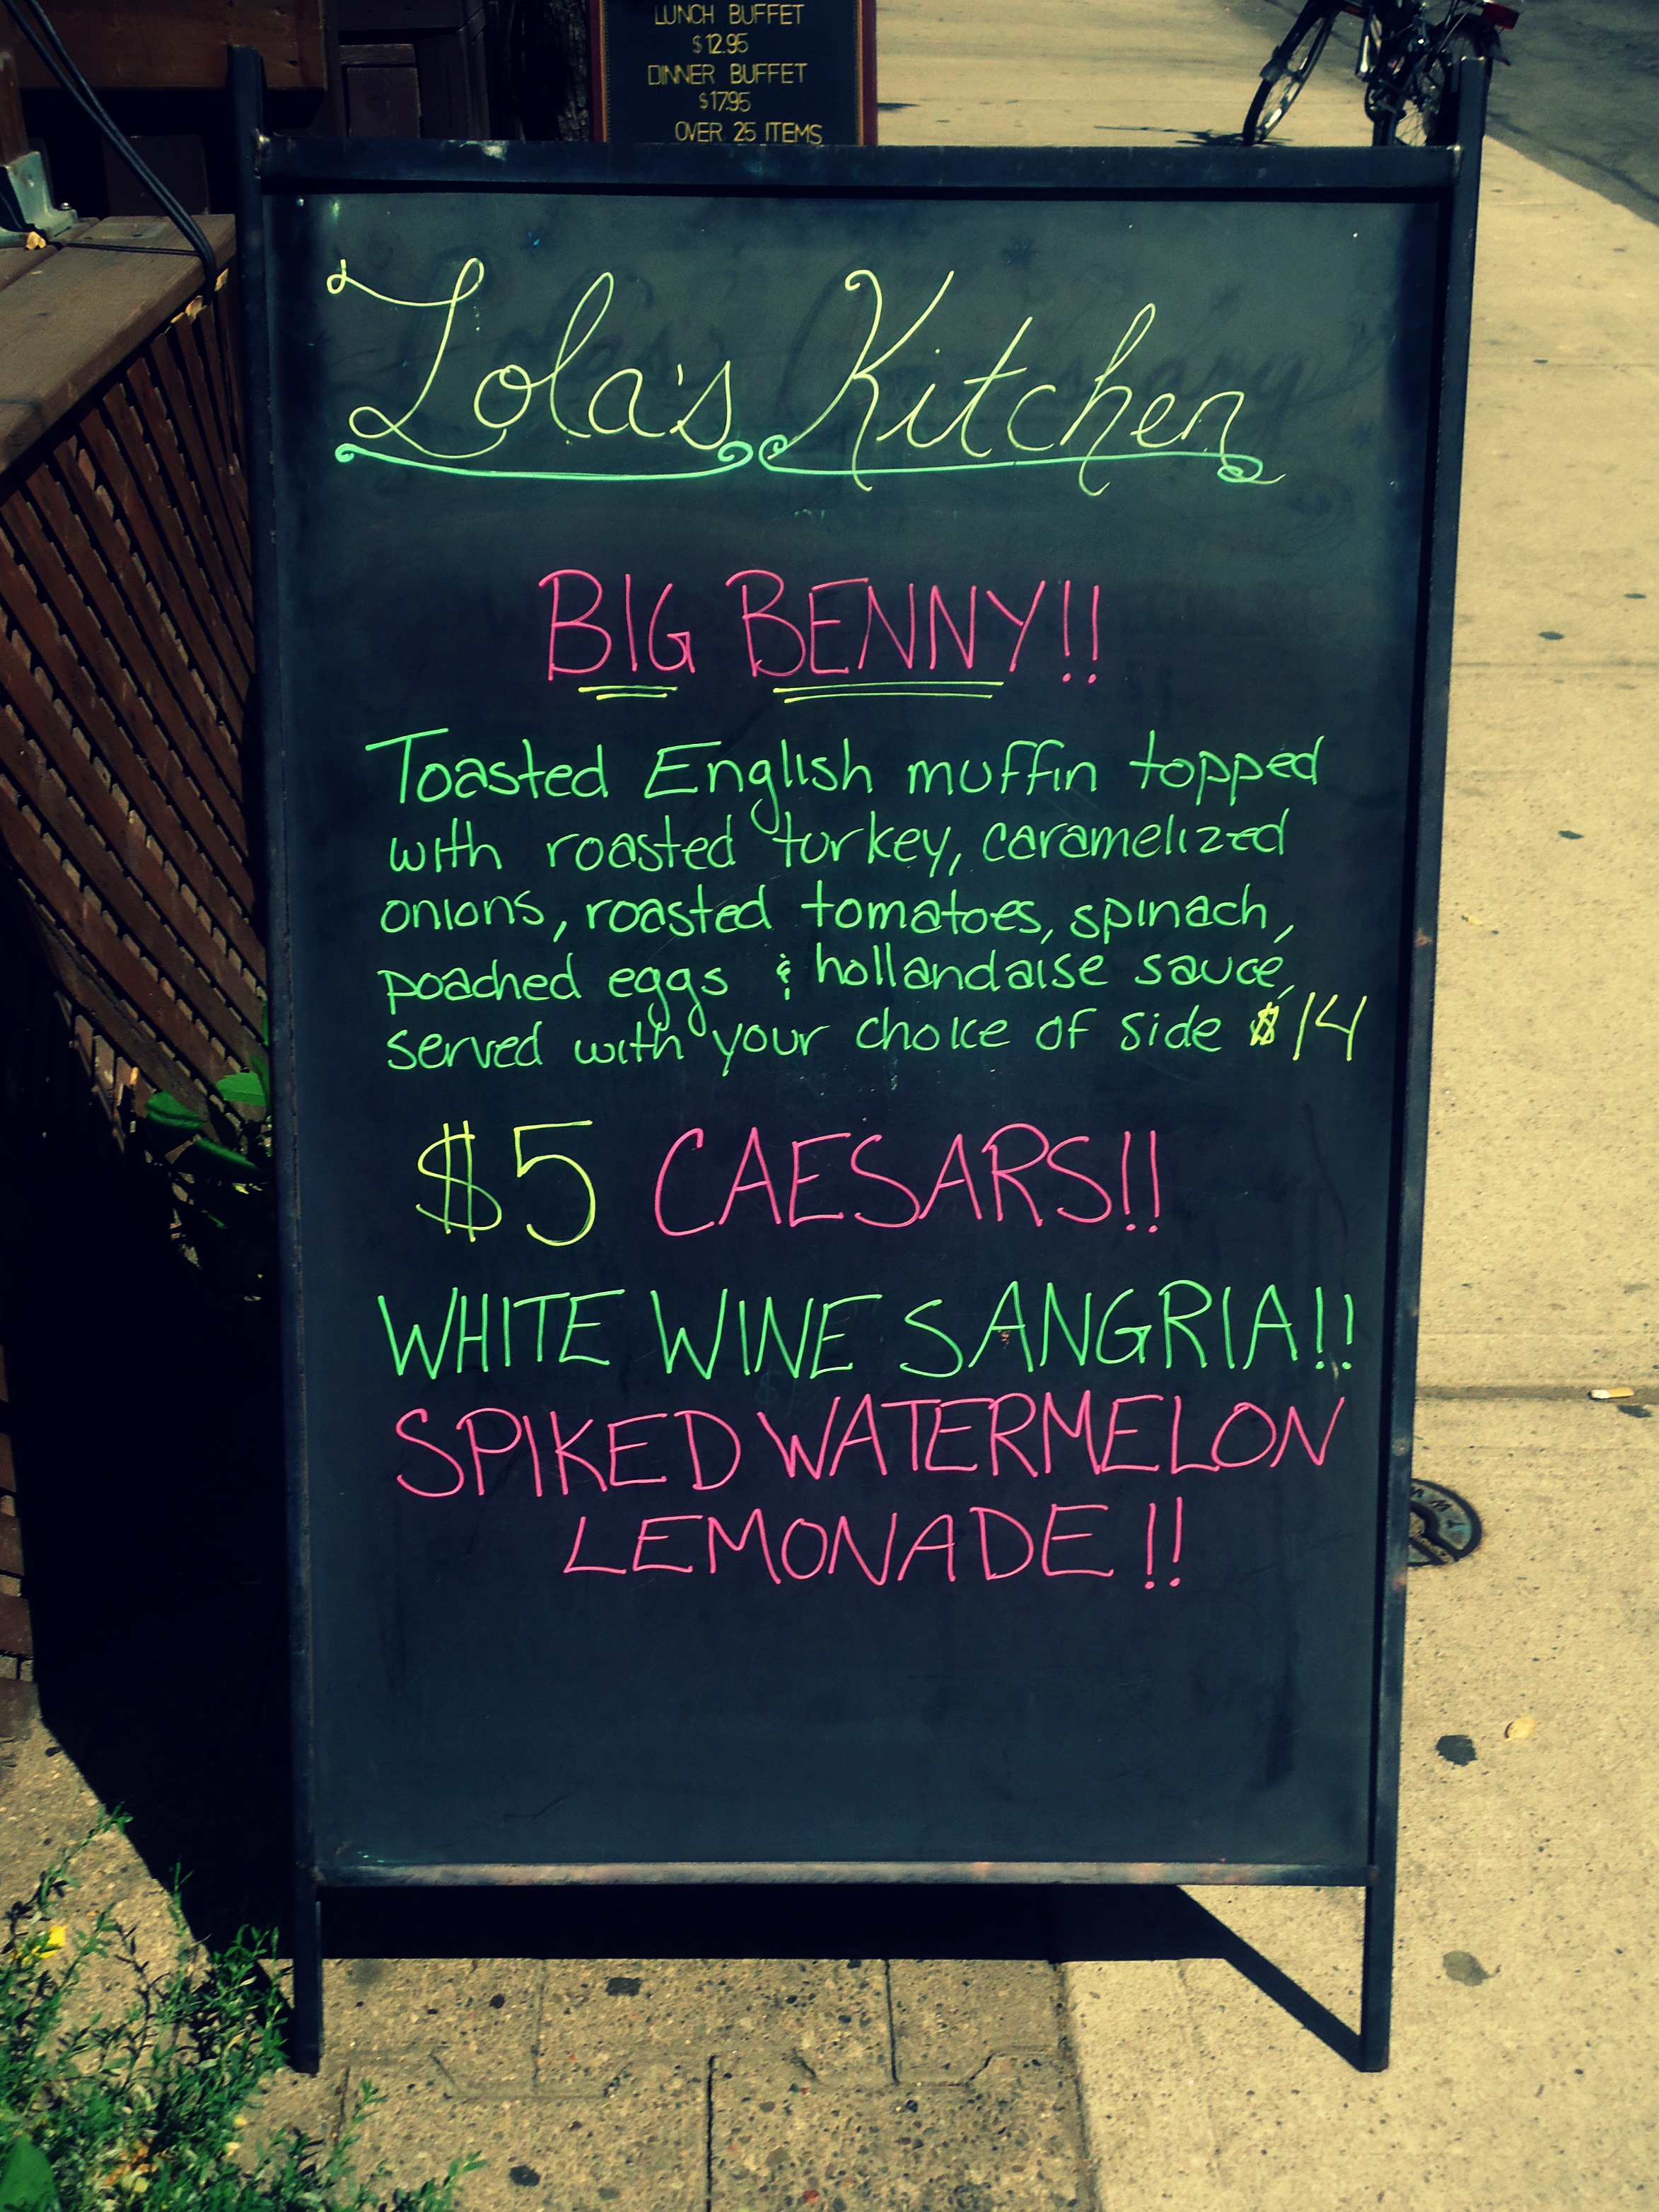 LUNCH BUFFET
$12.95
DINNER BUFFET
$17.95
OVER 25 ITEMS
Lola's Kitchen
BIG BENNY!!
Toasted English muffin topped
with roasted turkey, caramelized
onions, roasted tomatoes, spinach,
poached eggs & hollandaise sauce,
served with your choice of side $14
$5 CAESARS!!
WHITE WINE SANGRIA!!
SPIKED WATERMELON
LEMONADE!!